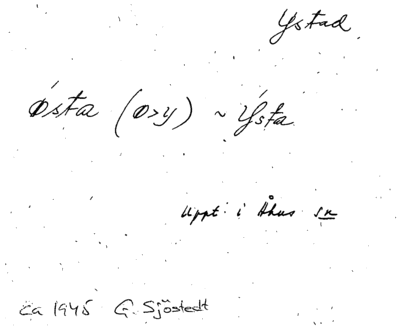 Ystad
ǿsta (ø>y) ~ ýsta
Uppt. i Åhus sn
ca 1945 G. Sjöstedt